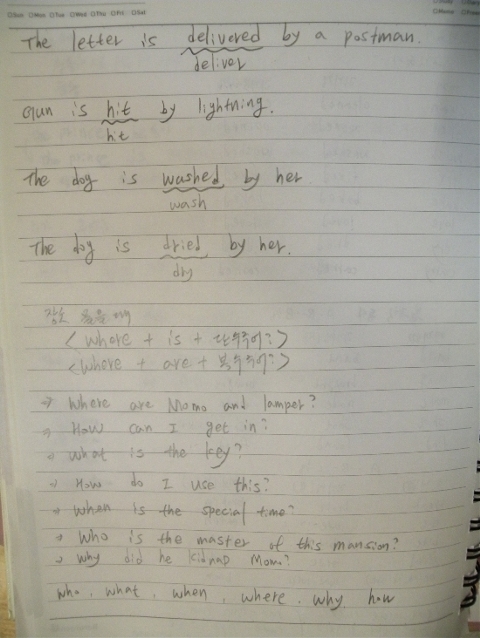 The letter is delivered by a postman.
deliver
Gun is hit by lightning.
hit
The dog is washed by her
wash
The dog is dried by her.
dry
장소 물을 때
<where + is + 단수주어?>
<where + are + 복수주어?>
→ Where are Momo and lamper?
→ How can I get in?
→ what is the key?
→ How do I use this?
→ when is the special time?
→ Who is the master of this mansion?
→ why did he kidnap Momo?
who, what, when, where, why, how